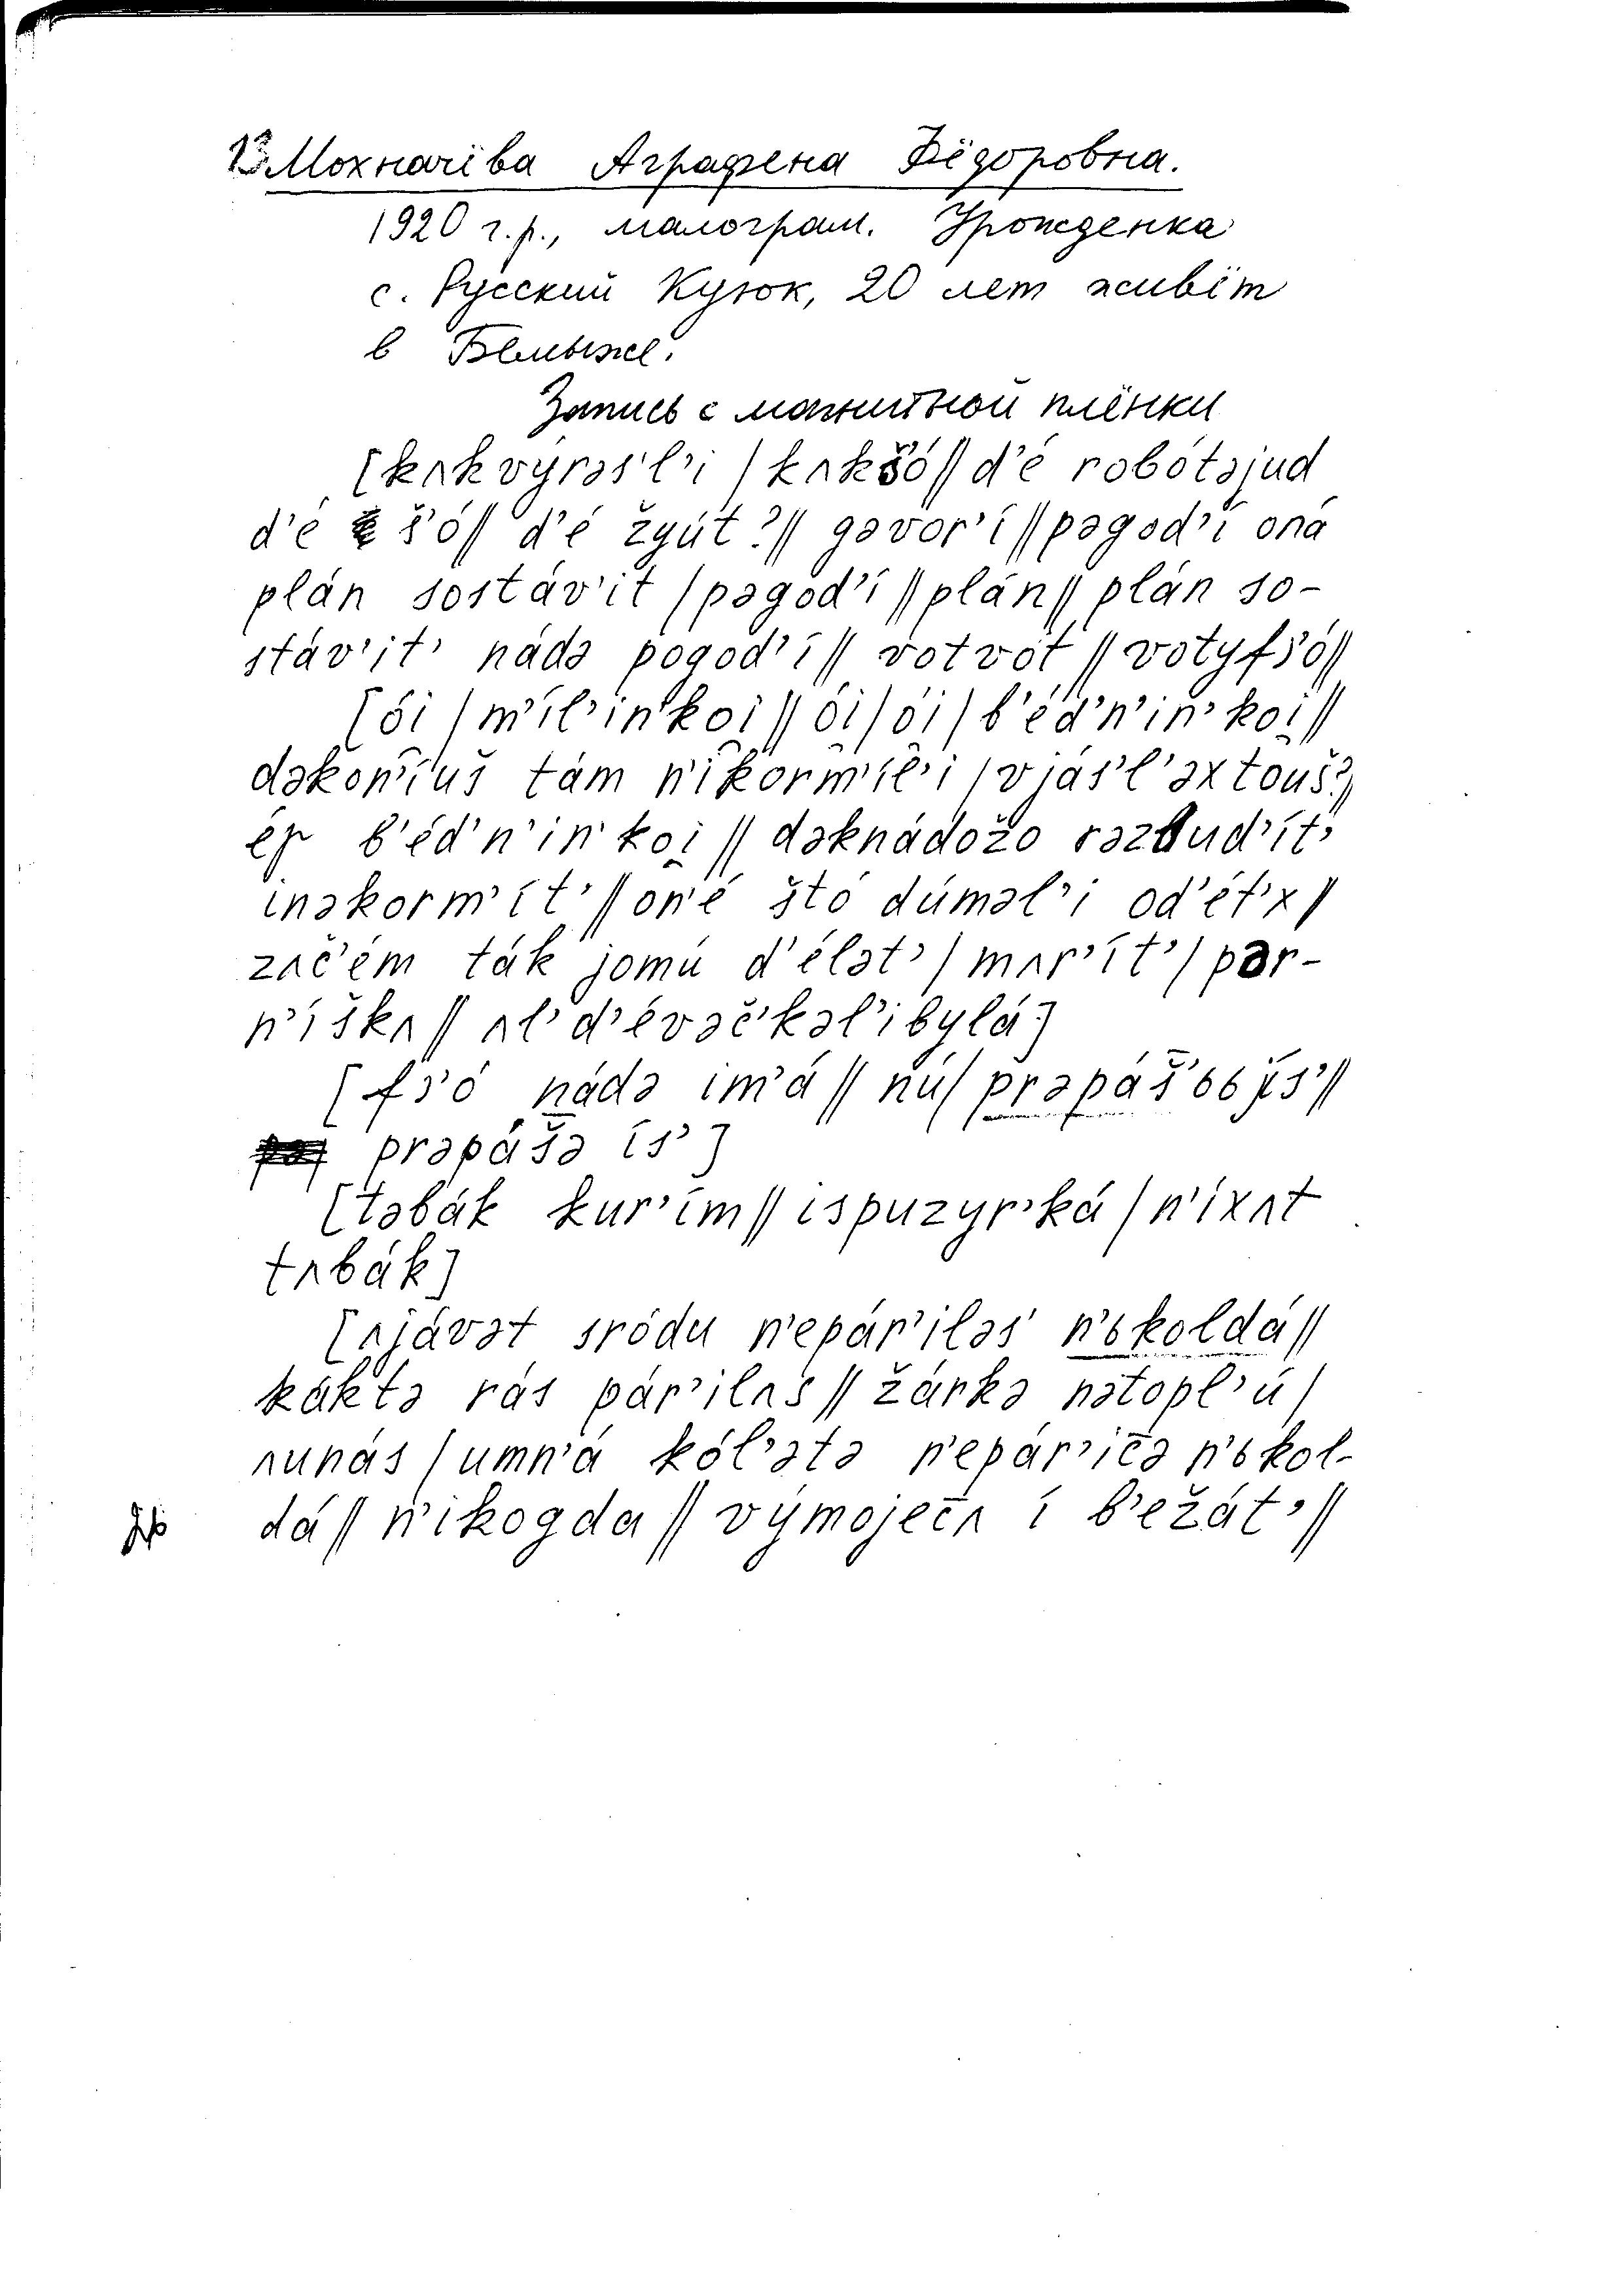 13 Мохначёва Аграфена Фёдоровна.
1920 г.р., малограм. Урожденка
с. Русский Куюк, 20 лет живёт
в Белыже.
Запись с магнитной плёнки
[kʌkvýrəs'l'i / kʌkšó // d'é robótəjud
d'é š'ó // d'é žyút? // gəvor'í // pəgod'í oná
plán sostáv'it / pəgod'í // plán // plán so-
stáv'it' nádə pogod'í // votvót // votyfs'ó //
[ói / m'íl'in'koi̯ // ói̯ / ói̯ / b'éd'n'in'koi̯ //
dəkon'íuš tám n'ikorm'íl'i / vjás'l'əxtouš? //
b'éd'n'in'koi̯ // dəknádožo rəzbud'ít'
inəkorm'ít' // on'é štó dúməl'i od'ét'x /
zʌč'ém ták jomú d'élət' / mʌr'ít' / pər-
n'íškʌ // ʌl'd'évəč'kəl'ibylá]
[fs'ó nádə im'á // nú / prəpáš'ььjís' //
prəpášə ís']
[təbák kur'ím // ispuzyr'ká / n'íxʌt
tʌbák]
[ʌjávət sródu n'epár'iləs' n'ьkoldá //
káktə rás pár'ilʌs' // žárkə nətopl'ú /
ʌunás / umn'á kól'ətə n'epár'ičə n'ьkol-
dá // n'ikogda // výmoječʌ í b'ežát' //